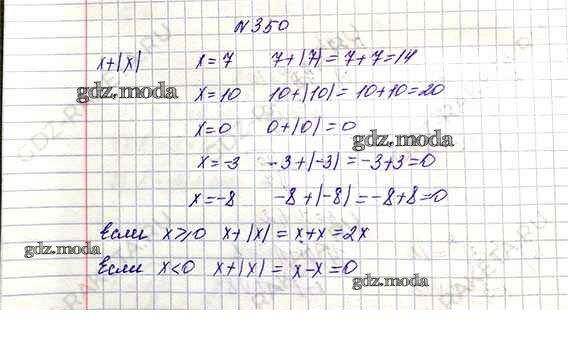 №350
x+|x| x=7 7+|7|=7+7=14
gdz.moda
x=10 10+|10|=10+10=20
x=0 0+|0|=0
gdz.moda
x=-3 -3+|-3|=-3+3=0
x=-8 -8+|-8|=-8+8=0
Если x≥0 x+|x|=x+x=2x
gdz.moda
Если x<0 x+|x|=x-x=0
gdz.moda